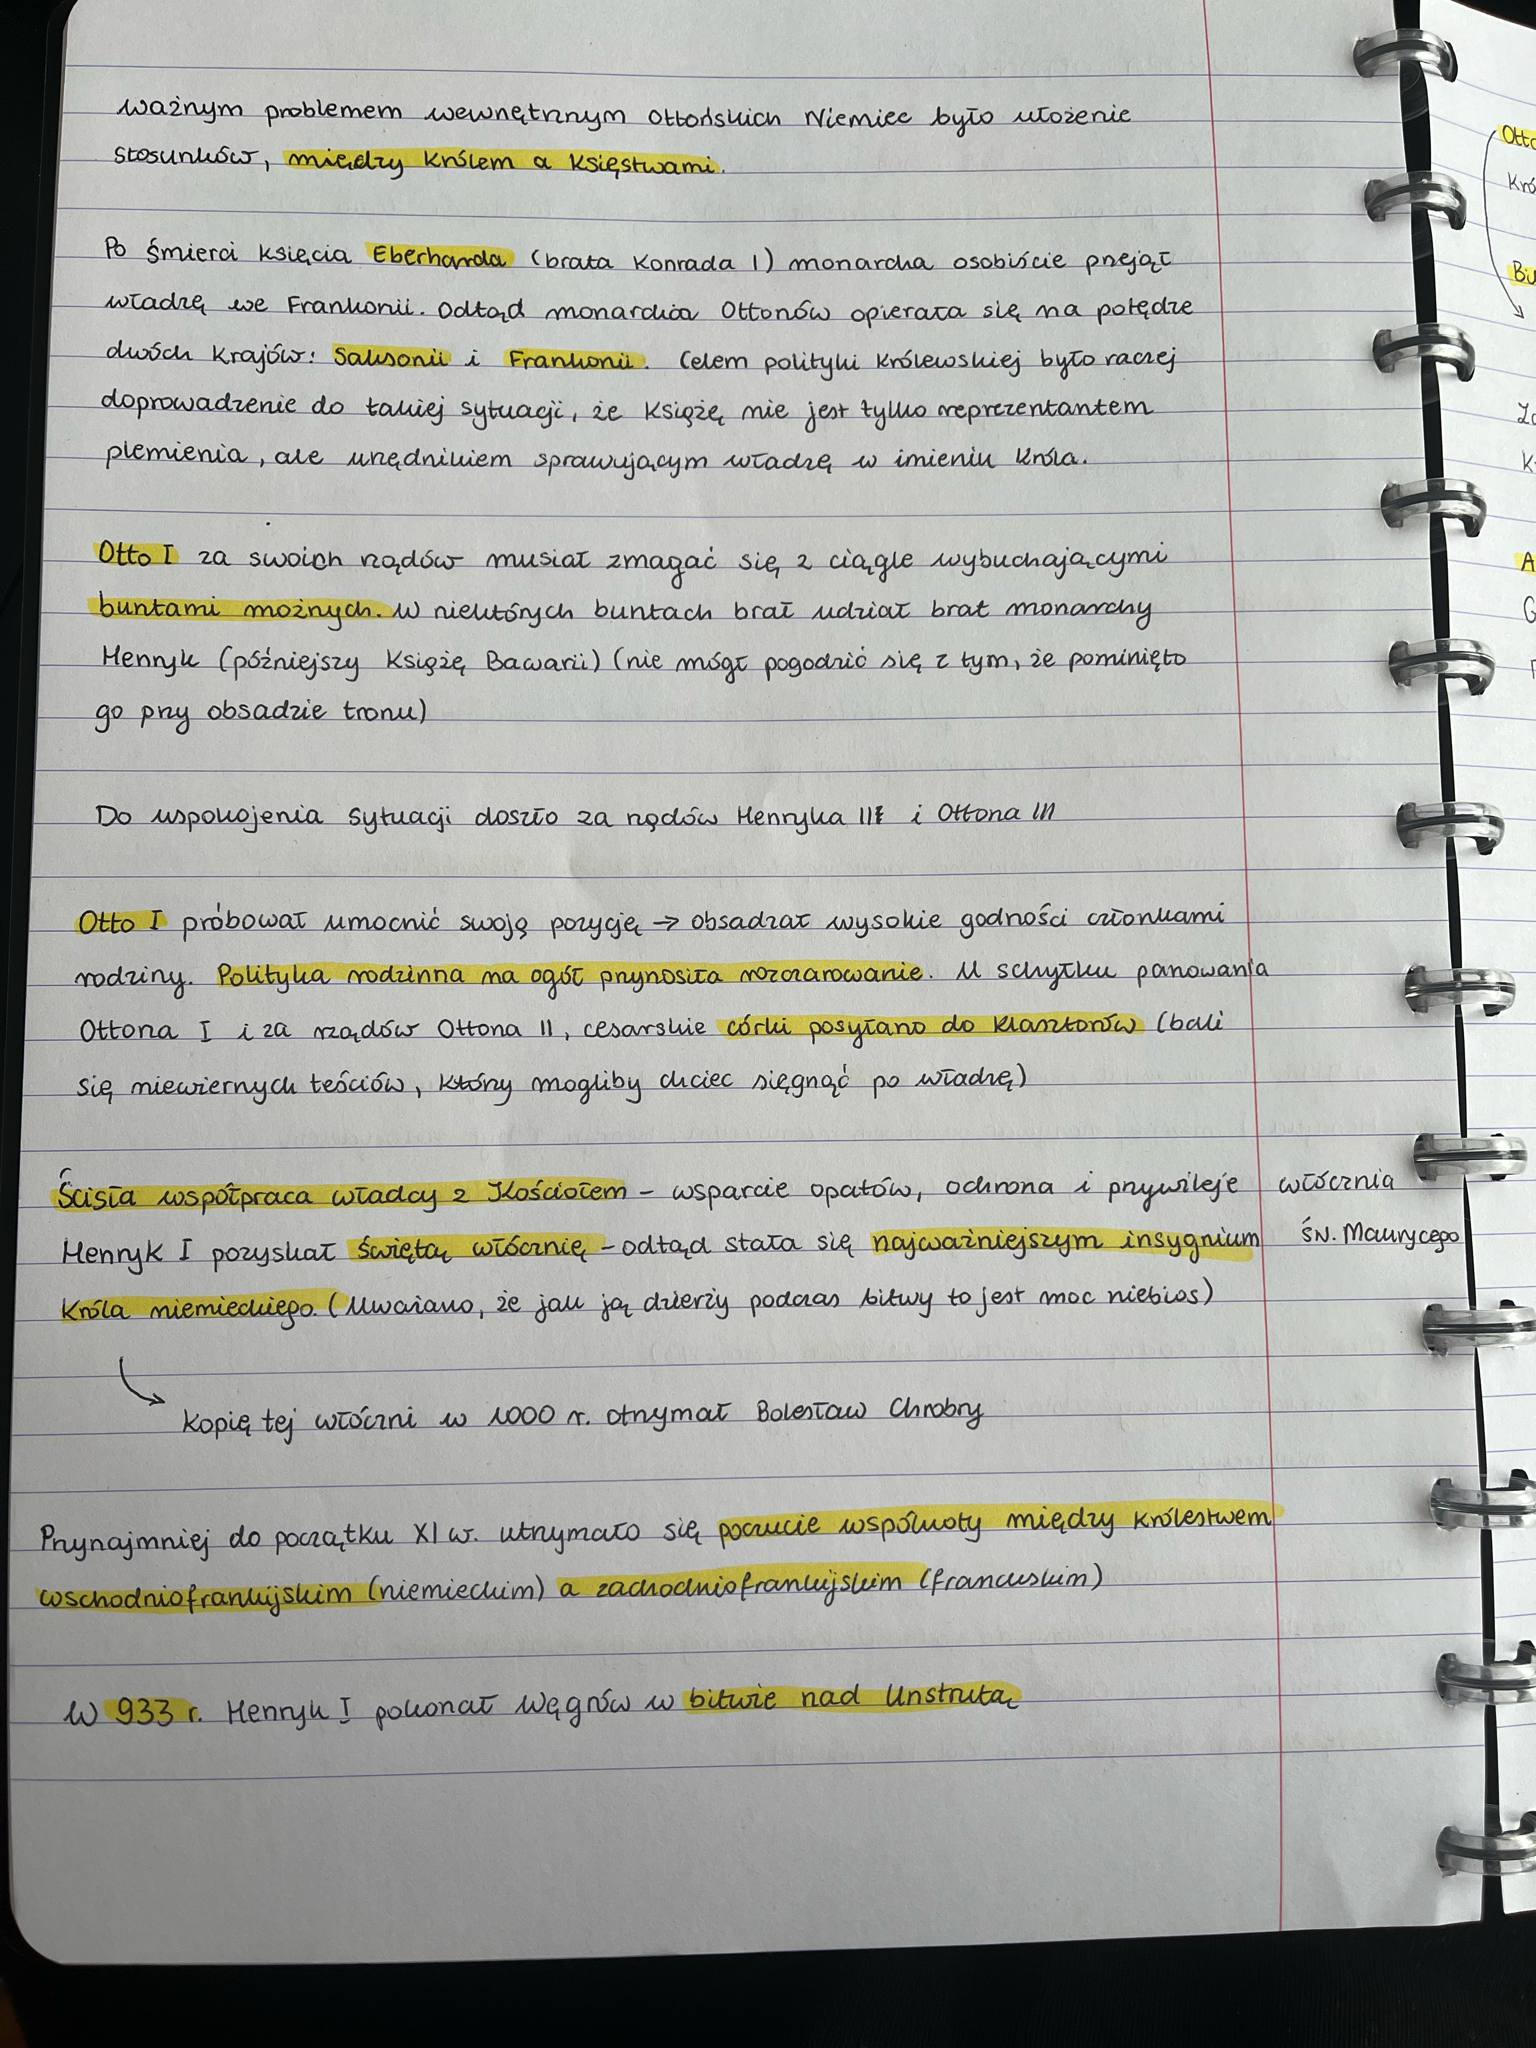 ważnym problemem wewnętrznym ottońskich Niemiec było ułożenie
stosunków, między królem a księstwami.
Po śmierci księcia Eberharda (brata Konrada I) monarcha osobiście przejął
władzę we Frankonii. Odtąd monarchia Ottonów opierała się na potędze
dwóch krajów: Saksonii i Frankonii. Celem polityki królewskiej było raczej
doprowadzenie do takiej sytuacji, że książę nie jest tylko reprezentantem
plemienia, ale urzędnikiem sprawującym władzę w imieniu króla.
Otto I za swoich rządów musiał zmagać się z ciągle wybuchającymi
buntami możnych. W niektórych buntach brał udział brat monarchy
Henryk (późniejszy Książę Bawarii) (nie mógł pogodzić się z tym, że pominięto
go przy obsadzie tronu)
Do uspokojenia sytuacji doszło za rządów Henryka II i Ottona III
Otto I próbował umocnić swoją pozycję → obsadzał wysokie godności członkami
rodziny. Polityka rodzinna na ogół przynosiła rozczarowanie. U schyłku panowania
Ottona I i za rządów Ottona II, cesarskie córki posyłano do klasztorów (bali
się niewiernych teściów, który mogliby chciec sięgnąć po władzę)
Ścisła współpraca władcy z Kościołem - wsparcie opatów, ochrona i przywileje
Henryk I pozyskał świętą włócznię - odtąd stała się najważniejszym insygnium
króla niemieckiego. (Uważano, że jak ją dzierży podczas bitwy to jest moc niebios)
włócznia
św. Maurycego
kopię tej włóczni w 1000 r. otrzymał Bolesław Chrobry
Przynajmniej do początku XI w. utrzymało się poczucie wspólnoty między królestwem
wschodniofrankijskim (niemieckim) a zachodniofrankijskim (francuskim)
W 933 r. Henryk I pokonał Węgrów w bitwie nad Unstrutą